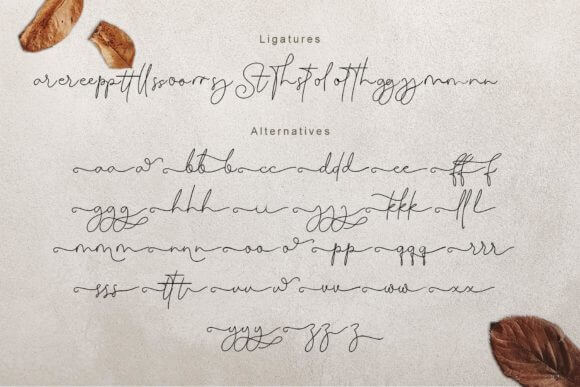 Ligatures
ar er er ee pp tt ll ss oo rr sy St Th st ol ot th gg y mm nn
Alternatives
a a a b b b c c d d d e e f f f
g g g h h h i i j j j k k k l l l
m m m n n n o o o p p q q q r r r
s s s t t t u u u v v w w x x
y y y z z z